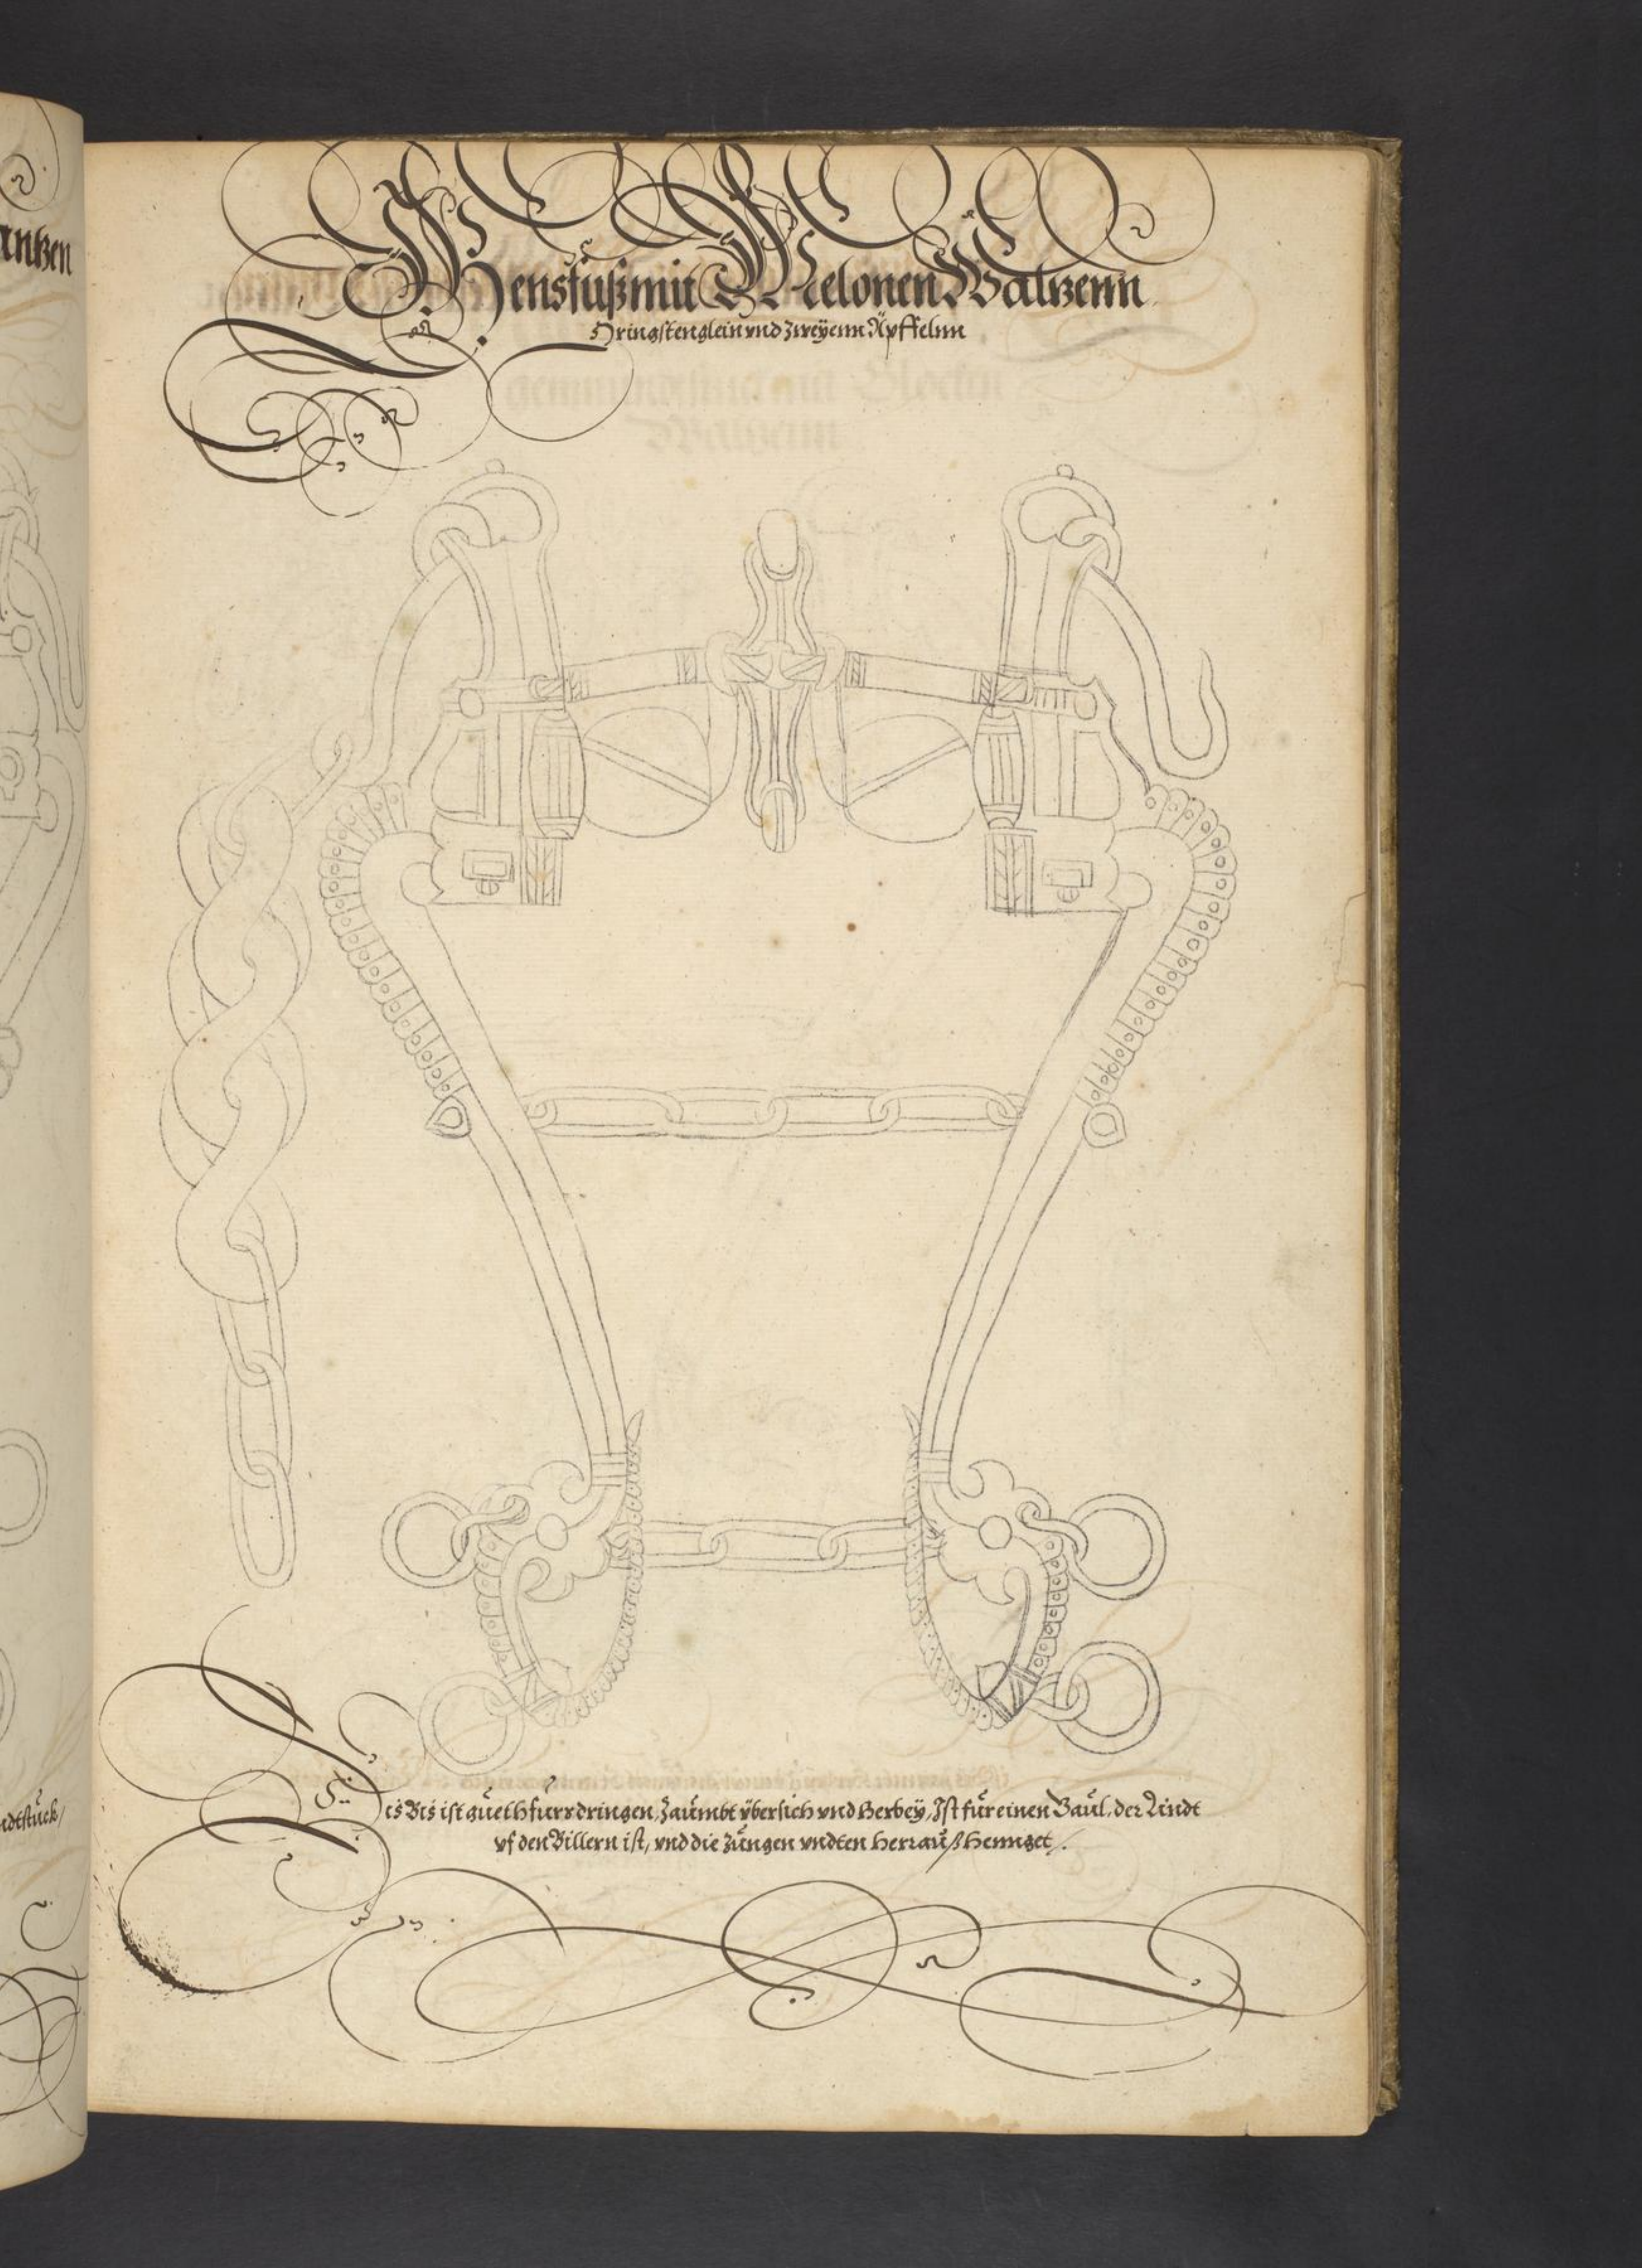 antzen
Gensfüß mit Melonen Waltzenn
Springstenglein vnd zweÿenn Äpffelnn
ndtstück/
Dis Bis ist güeth fürr dringen, Zaümbt ÿbersich vnd Herbeÿ, Ist für einen Gaül, der Lindt
vf den Billern ist, vnd die Züngen vndten herrauß Hennget /.